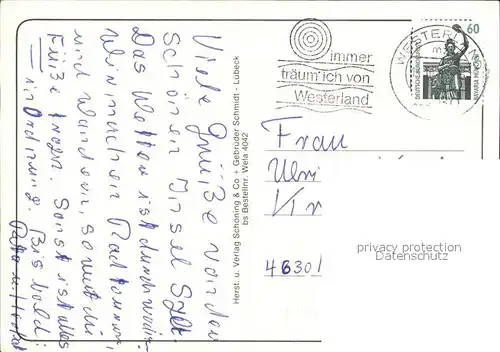 Viele Grüße von der
schönen Insel Sylt.
Das Wetter ist durchwachsen
und wandern, soweit die
Füße tragen. Sonst ist alles
in Ordnung. Bis bald!
Herst. u. Verlag Schöning & Co + Gebrüder Schmidt - Lübeck
bs Bestellnr. Wela 4042
immer
träum' ich von
Westerland
WESTERLAND
60
DEUTSCHE BUNDESPOST
BAVARIA MÜNCHEN
Frau
4630/
privacy protection
Datenschutz